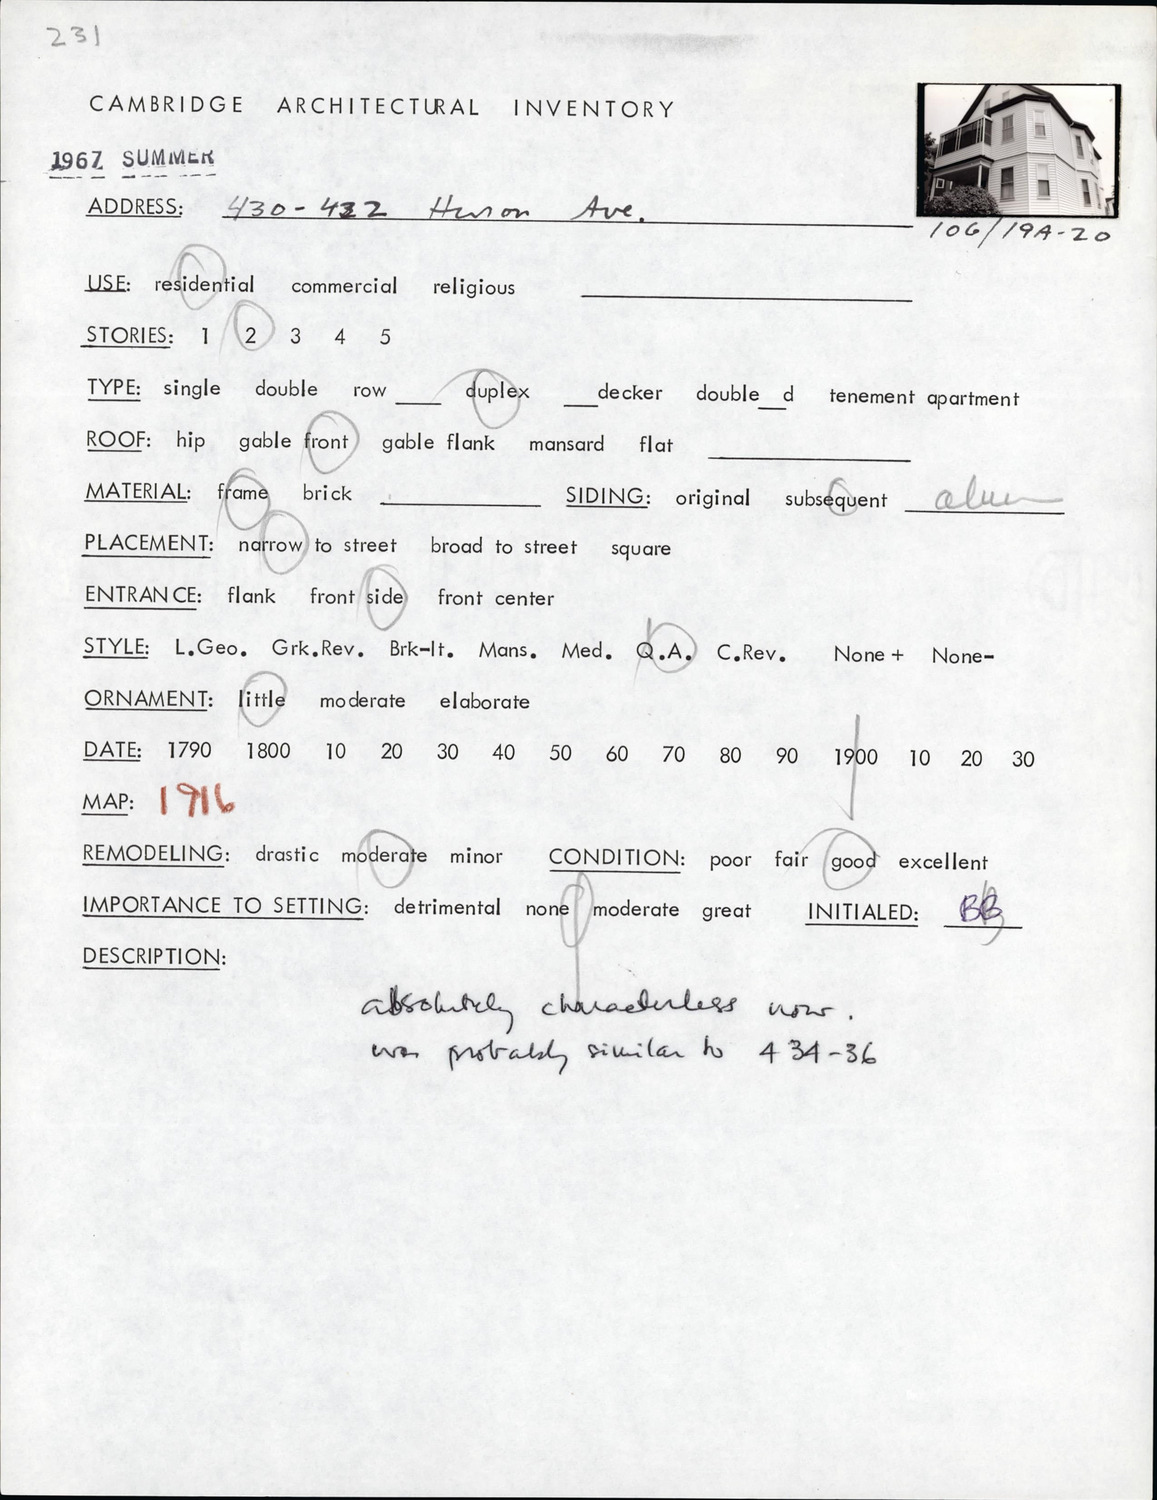 231
CAMBRIDGE ARCHITECTURAL INVENTORY
1967 SUMMER
ADDRESS: 430-432 Huron Ave.
106/19A-20
USE: residential commercial religious
STORIES: 1 2 3 4 5
TYPE: single double row ____ duplex ___decker double___d tenement apartment
ROOF: hip gable front gable flank mansard flat
MATERIAL: frame brick SIDING: original subsequent alum
PLACEMENT: narrow to street broad to street square
ENTRANCE: flank front side front center
STYLE: L.Geo. Grk.Rev. Brk-It. Mans. Med. Q.A. C.Rev. None+ None-
ORNAMENT: little moderate elaborate
DATE: 1790 1800 10 20 30 40 50 60 70 80 90 1900 10 20 30
MAP: 1916
REMODELING: drastic moderate minor CONDITION: poor fair good excellent
IMPORTANCE TO SETTING: detrimental none moderate great INITIALED: BB
DESCRIPTION:
absolutely characterless now.
was probably similar to 434-36